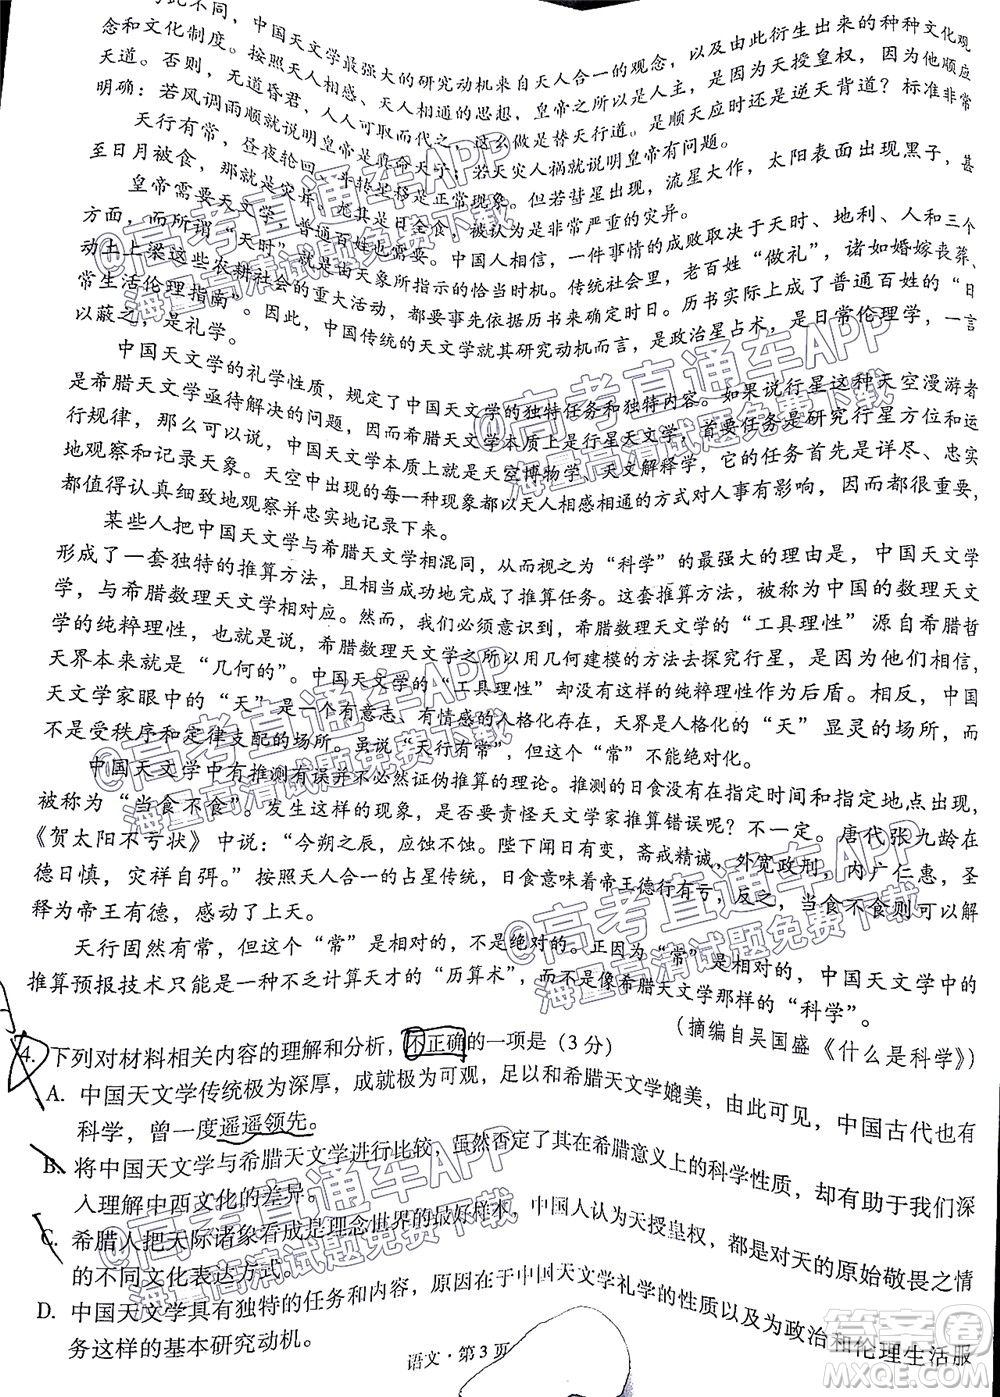 与此不同，中国天文学最强大的研究动机来自天人合一的观念，以及由此衍生出来的种种文化观
念和文化制度。按照天人相感、天人相通的思想，皇帝之所以为皇帝，是因为天授皇权，因他顺应
天道。否则，无道昏君，人人可取而代之，这么做是替天行道。是顺天应时还是逆天背道？标准非常
明确：若风调雨顺就说明皇帝有德于天下；若天灾人祸就说明皇帝有问题。
天行有常，昼夜轮回、斗转星移是正常现象。但若彗星出现，流星大作，太阳表面出现黑子，甚
至日月被食，那就是灾异。尤其是日全食，被认为是非常严重的灾异。
皇帝需要天文学，普通百姓也需要。中国人相信，一件事情的成败取决于天时、地利、人和三个
方面，而所谓“天时”就是天象所指示的恰当时机。传统社会里，老百姓“做礼”，诸如婚嫁丧葬、
动土上梁这些农耕社会的重大活动，都要事先依据历书来确定日子。历书实际上成了普通百姓的“日
常生活伦理指南”。因此，中国传统的天文学就其研究动机而言，是政治星占术，是日常伦理学，一言
以蔽之，是礼学。
中国天文学的礼学性质，规定了中国天文学的独特任务和独特内容。如果说行星这种天空漫游者
是希腊天文学亟待解决的问题，因而希腊天文学本质上是行星天文学，首要任务是研究行星的运
行规律，那么可以说，中国天文学本质上就是天空博物学、天文解释学，它的任务首先是详尽、忠实
地观察和记录天象。天空中出现的每一种现象都以天人相感相通的方式对人事有影响，因而都很重要，
都值得认真细致地观察并忠实地记录下来。
某些人把中国天文学与希腊天文学相混同，从而视之为“科学”的最强大的理由是，中国天文学
形成了一套独特的推算方法，并且相当成功地完成了推算任务。这套推算方法，被称为中国的数理天文
学，与希腊数理天文学相对应。然而，我们必须意识到，希腊数理天文学的“工具理性”源自希腊哲
学的纯粹理性，也就是说，希腊数理天文学之所以用几何建模的方法去探究行星，是因为他们相信，
天界本来就是“几何的”。中国天文学的“工具理性”却没有这样的纯粹理性作为后盾。相反，中国
天文学家眼中的“天”是一个有意志、有情感的人格化存在，天界是人格化的“天”显灵的场所，而
不是受秩序和定律支配的场所。虽说“天行有常”，但这个“常”不能绝对化。
中国天文学中有推测有误并不必然证伪推算的理论。推测的日食在指定时间和指定地点出现，
被称为“当食不食”。发生这样的现象，是否要责怪天文学家推算错误呢？不一定。唐代张九龄在
《贺太阳不亏状》中说：“今朔之辰，应蚀不蚀。陛下闻日有变，斋戒精诚，外宽政刑，内广仁惠，圣
德日慎，灾祥自弭。”按照天人合一的占星传统，日食意味着帝王德行有亏，反之，当食不食则可以解
释为帝王有德，感动了上天。
天行固然有常，但这个“常”是相对的，不是绝对的。因为“常”是相对的，中国天文学中的
推算预报技术只能是一种不乏计算天才的“历算术”，而不是像希腊天文学那样的“科学”。
（摘编自吴国盛《什么是科学》）
4. 下列对材料相关内容的理解和分析，不正确的一项是（3 分）
A. 中国天文学传统极为深厚，成就极为可观，足以和希腊天文学媲美，由此可见，中国古代也有
科学，曾一度遥遥领先。
B. 将中国天文学与希腊天文学进行比较，虽然否定了其在希腊意义上的科学性质，却有助于我们深
入理解中西文化的差异。
C. 希腊人把天际诸象看成是理念世界的最好样本，中国人认为天授皇权，都是对天的原始敬畏之情
的不同文化表达方式。
D. 中国天文学具有独特的任务和内容，原因在于中国天文学礼学的性质以及为政治和伦理生活服
务这样的基本研究动机。
语文·第 3 页